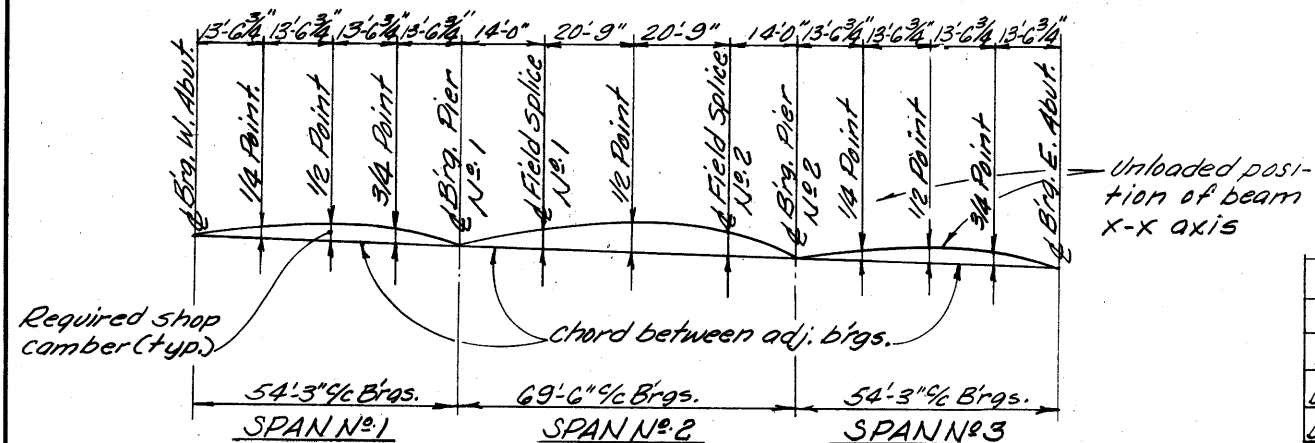 13'-6¾" 13'-6¾" 13'-6¾" 13'-6¾" 14'-0" 20'-9" 20'-9" 14'-0" 13'-6¾" 13'-6¾" 13'-6¾ 13'-6¾"
℄ Brg. W. Abut.
1/4 Point.
1/2 Point
3/4 Point
℄ Brg. Pier
Nº 1
℄ Field Splice
Nº 1
1/2 Point
℄ Field Splice
Nº 2
℄ Brg. Pier
Nº 2
1/4 Point
1/2 Point
3/4 Point
℄ Brg. E. Abut.
Unloaded posi-
tion of beam
x-x axis
Required shop
camber (typ.)
chord between adj. brgs.
54'-3" c/c Brgs.
69'-6" c/c Brgs.
54'-3" c/c Brgs.
SPAN Nº 1
SPAN Nº 2
SPAN Nº 3